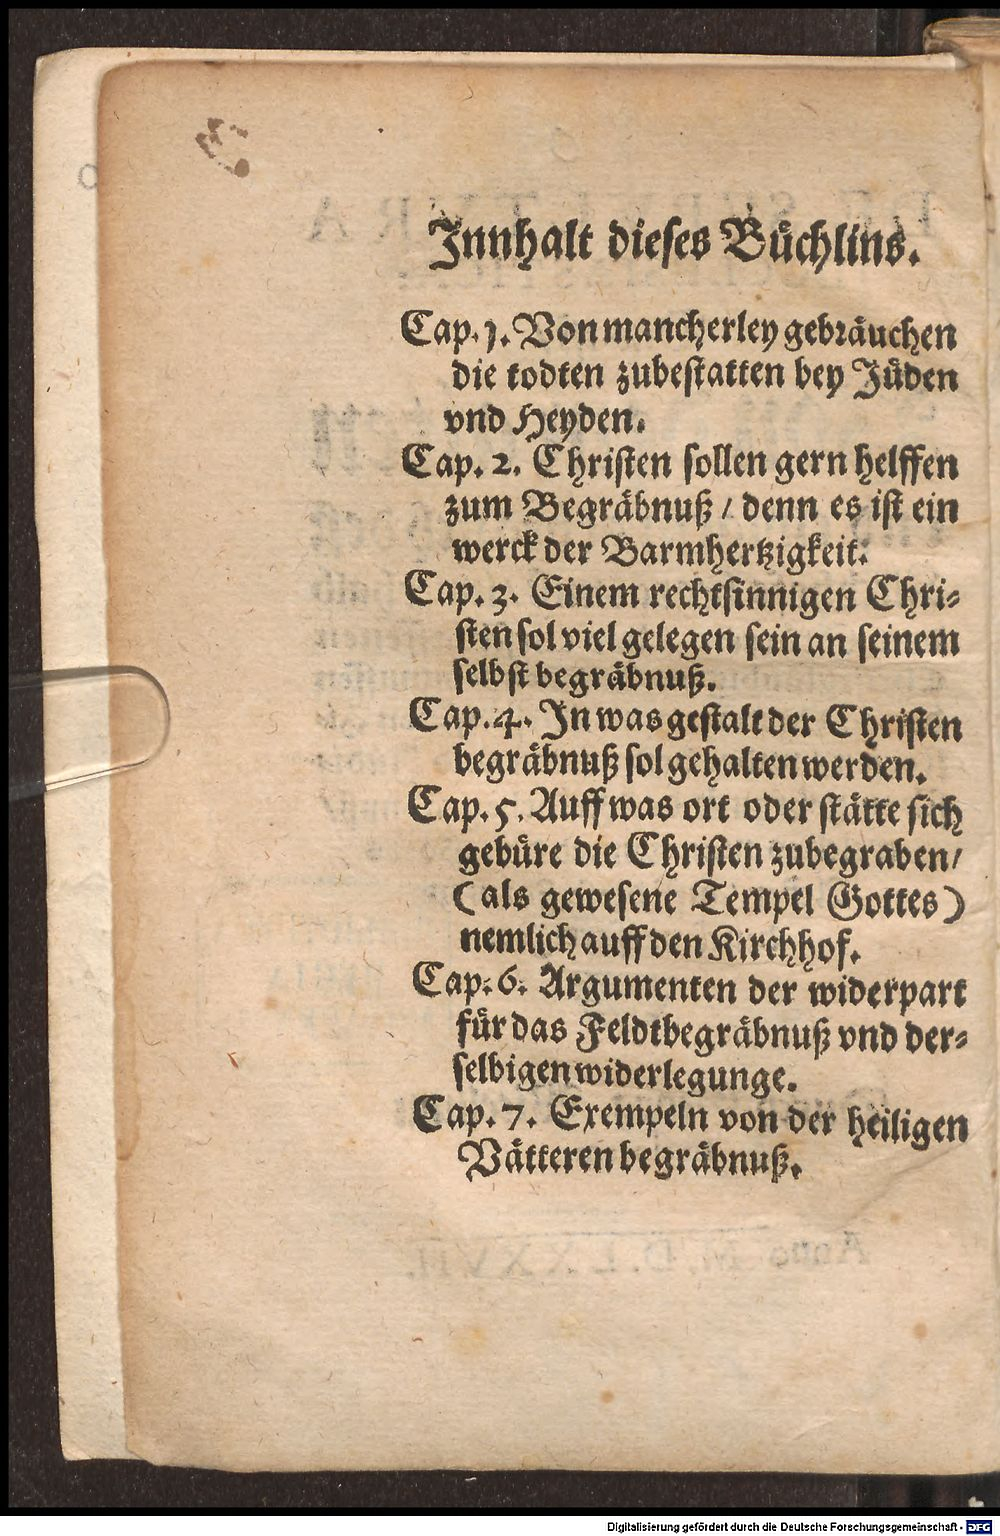 Innhalt dieses Büchlins.
Cap. 1. Von mancherley gebräuchen
die todten zubestatten bey Jüden
vnd Heyden.
Cap. 2. Christen sollen gern helffen
zum Begräbnuß / denn es ist ein
werck der Barmhertzigkeit.
Cap. 3. Einem rechtsinnigen Chri-
sten sol viel gelegen sein an seinem
selbst begräbnuß.
Cap. 4. In was gestalt der Christen
begräbnuß sol gehalten werden.
Cap. 5. Auff was ort oder stätte sich
gebüre die Christen zubegraben/
(als gewesene Tempel Gottes)
nemlich auff den Kirchhof.
Cap. 6. Argumenten der widerpart
für das Feldtbegräbnuß vnd der-
selbigen widerlegunge.
Cap. 7. Exempeln von der heiligen
Vätteren begräbnuß.
Digitalisierung gefördert durch die Deutsche Forschungsgemeinschaft - DFG